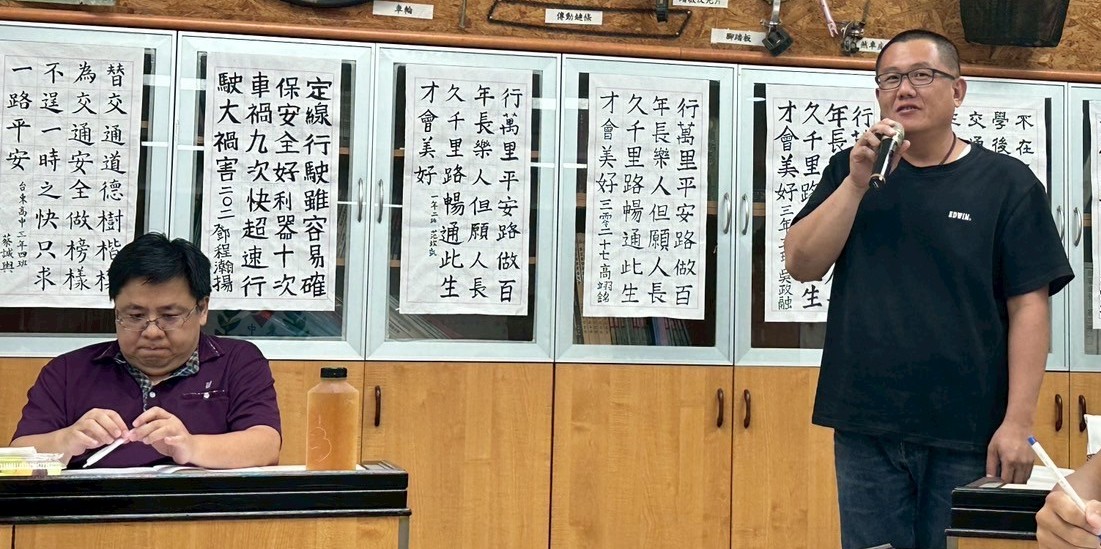 車輪
傳動鏈條
腳踏板
煞車
替交通道德樹楷模
為交通安全做榜樣
不逞一時之快只求
一路平安
台東高中三年四班
蔡誠與
定線行駛雖容易確
保安全好利器十次
車禍九次快超速行
駛大禍害二〇二鄧程瀚揚
行萬里平安路做百
年長樂人但願人長
久千里路暢通此生
才會美好 一年二班
行萬里平安路做百
年長樂人但願人長
久千里路暢通此生
才會美好三零二十七高翊銘
行
年長 生
久千里路
才會美好三年 吳政融
不在
學後
交通
EDWIN.